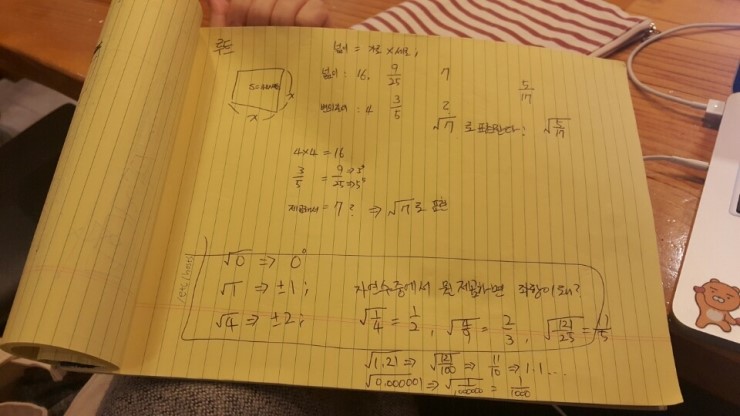 루트
넓이 = 가로 × 세로;
넓이 : 16, 9/25 7 5/17
변의길이 : 4 3/5 2
x x
√7 로 표현한다; √5/17
4×4 = 16
3/5 = 9/25 ⇒3² ⇒5²
제곱해서 = 7? ⇒ √7로 표현
√0 ⇒ 0
√1 ⇒ ±1;
자연수중에서 뭘 제곱하면 좌항이 돼?
√4 ⇒ ±2;
√1/4 = 1/2, √4/9 = 2/3, √121/25 = 11/5
√1.21 ⇒ √121/100 ⇒ 11/10 ⇒ 1.1 ...
√0.000001 ⇒ √1/1000000 = 1/1000